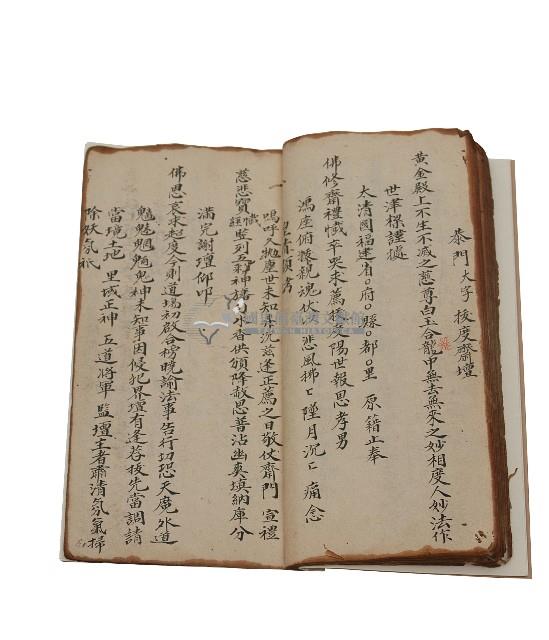 泰門大字 拔度齋壇
黃金殿上不生不滅之慈尊白玉合龍中無去無來之妙相度人妙法作
世津樑謹據
太清國福建省○府○縣○都○里 原籍止奉
佛修齋禮懺辛哭求薦拔度陽世報恩孝男
鴻座俯接親魂伏 悲風拂〻墜月沉〻痛念
嗚呼久拋塵世未知 沉茲逢正薦之日敬仗齋門 宣禮
慈悲寶懺 經監列五 神燒 香供頒降赦恩普沾幽爽填納庫分
滿完謝壇仰叩
佛恩哀求超度今則道場初啟合榜曉諭法事告行切恐天魔外道
魑魅魍魎鬼神未知事因侵犯界壇有逢荐拔先當調請
當境土地 里域正神 五道將軍 監壇主者肅清氛氣掃
除妖氛祇